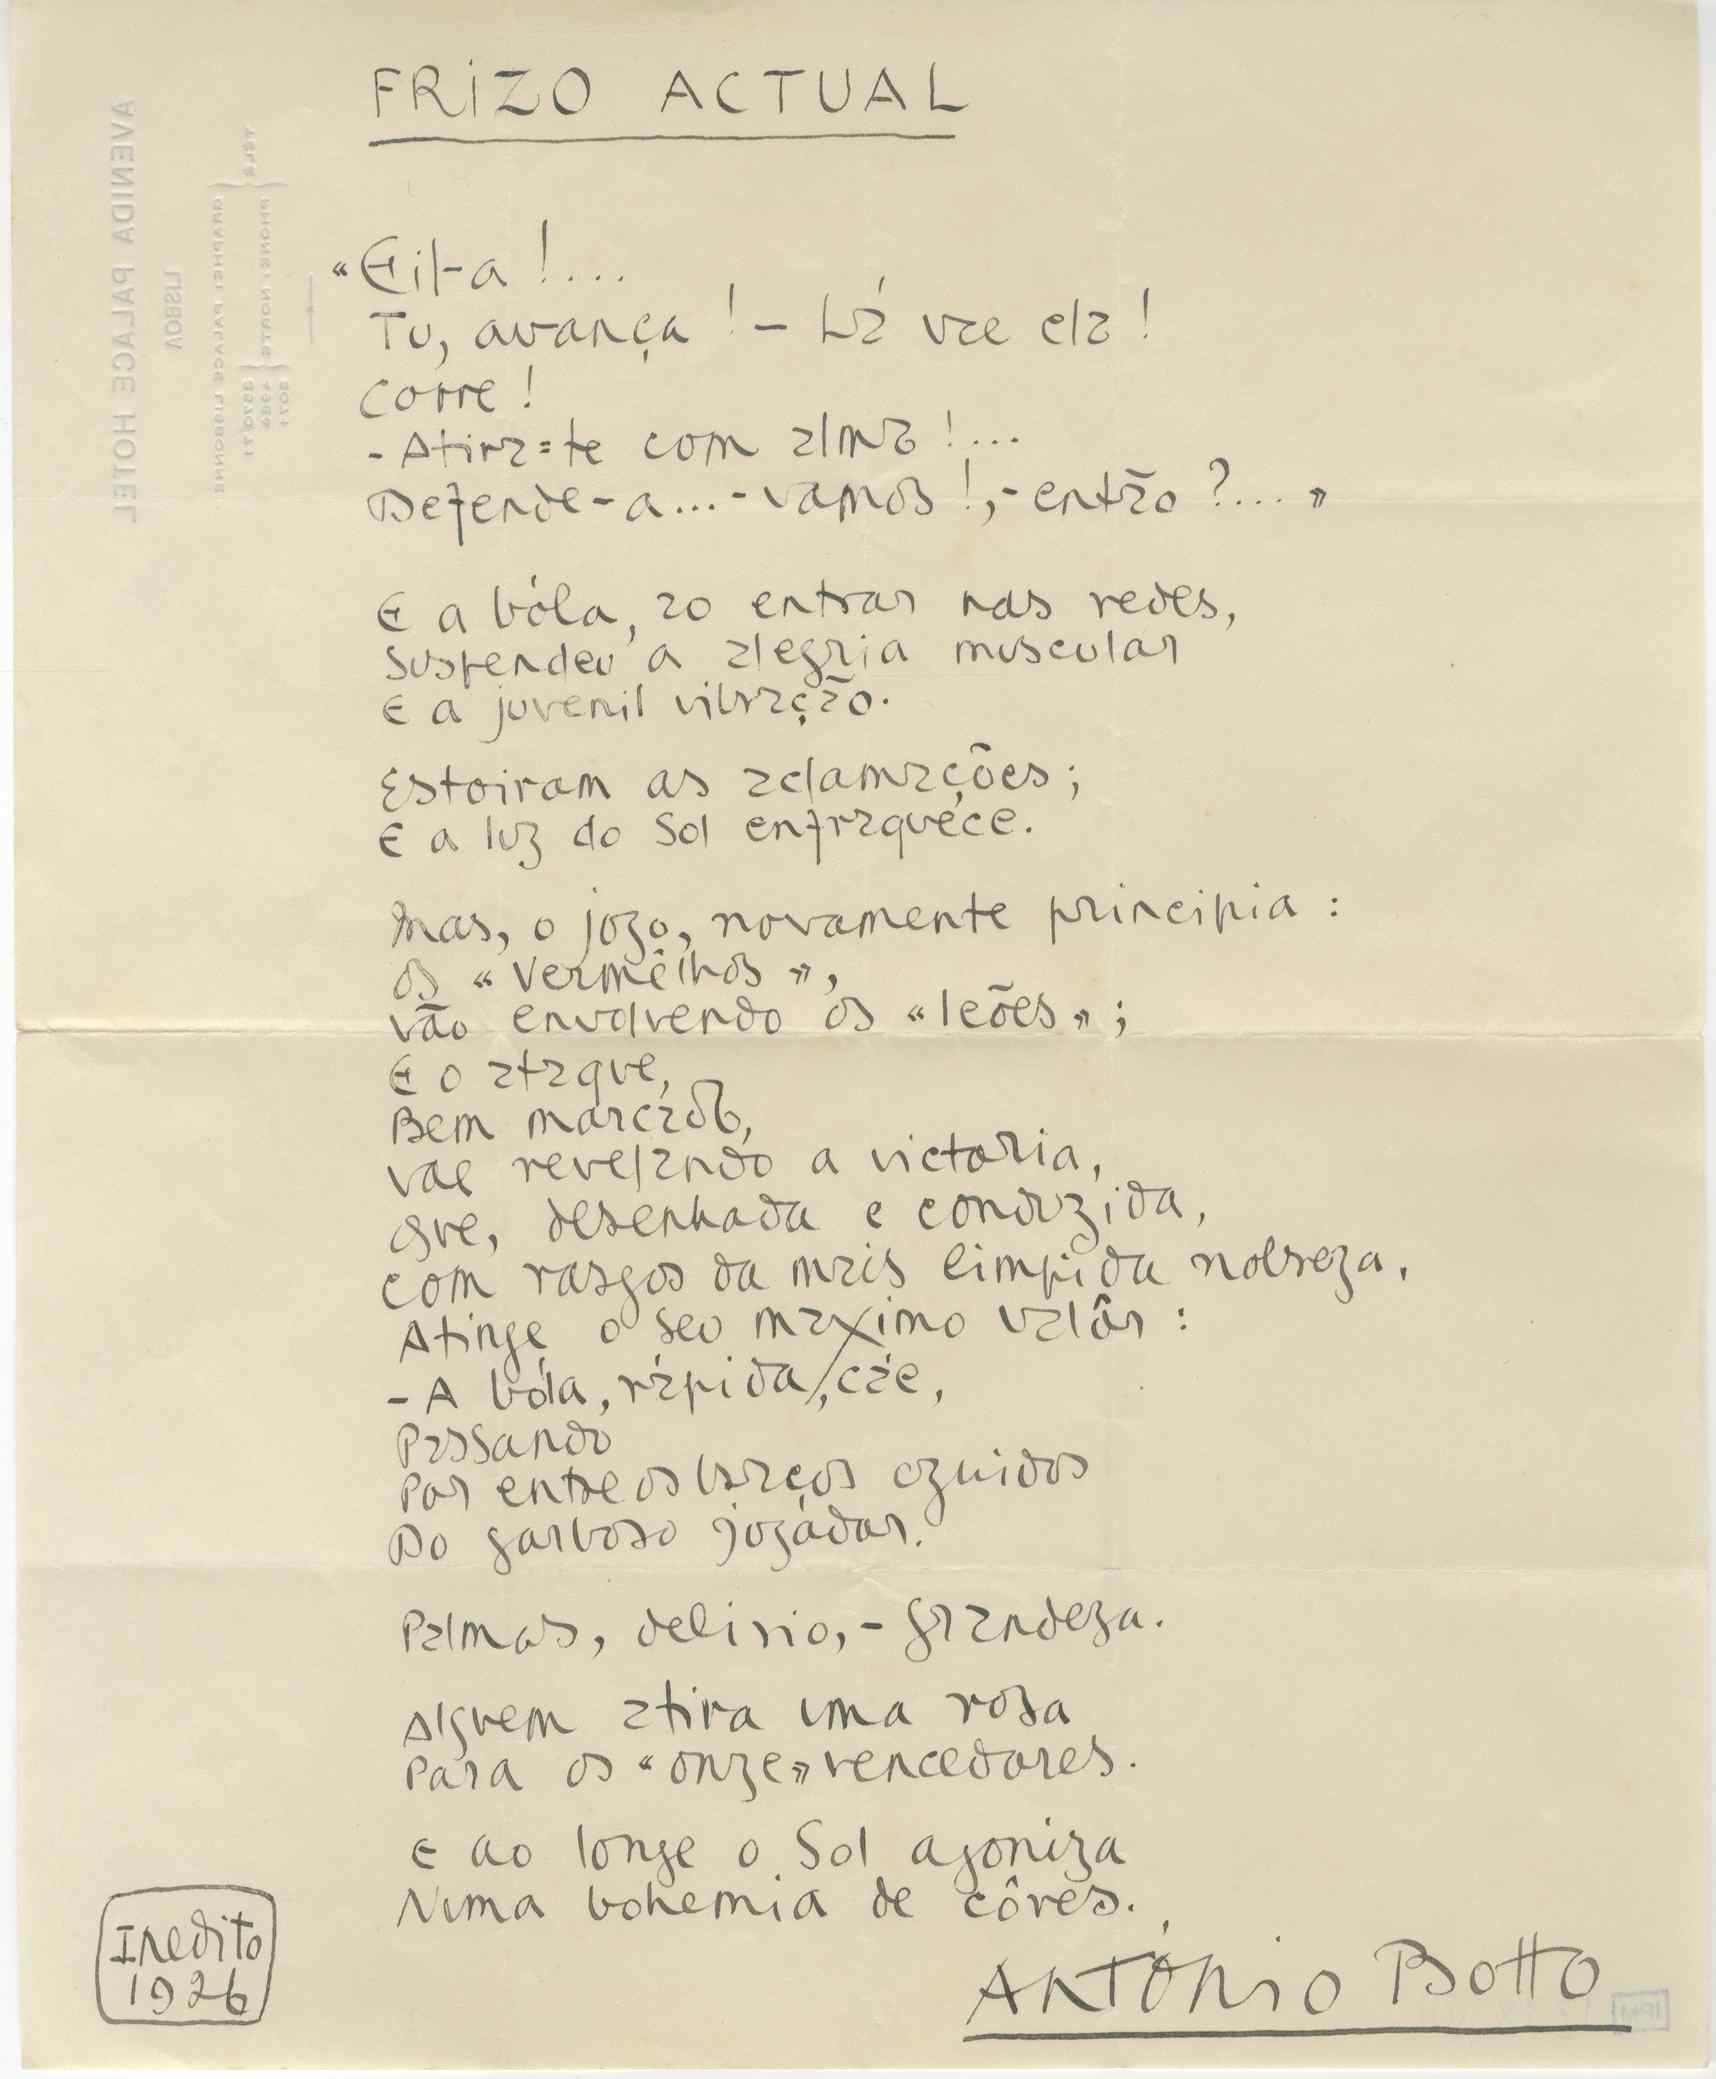 FRIZO ACTUAL
«Eita!...
Tu, avança! – Lá vae ela!
Corre!
- Atira=te com alma!...
Defende-a...-vamos!,-então?...»
E a bóla, ao entrar nas redes,
Suspendeu a alegria muscular
E a juvenil vibração.
Estoiram as aclamações;
E a luz do Sol enfraquéce.
Mas, o jogo, novamente principia:
Os «Vermêlhos»,
Vão envolvendo os «leões»;
E o ataque,
Bem marcado,
Vae revelando a victoria,
Que, desenhada e conduzida,
Com rasgos da mais limpida nobreza,
Atinge o seu maximo valôr:
- A bóla, rápida, cáe,
Passando
Por entre os braços erguidos
Do garboso jogádor.
Palmas, delirio,- grandeza.
Alguem atira uma rosa
Para os «onze» vencedores.
E ao longe o Sol agoniza
Numa bohemia de côres.
António Botto
Inedito
1926
AVENIDA PALACE HOTEL
LISBOA
TELE
PHONE: NORTE
GRAPHE: PALACE LISBONNE